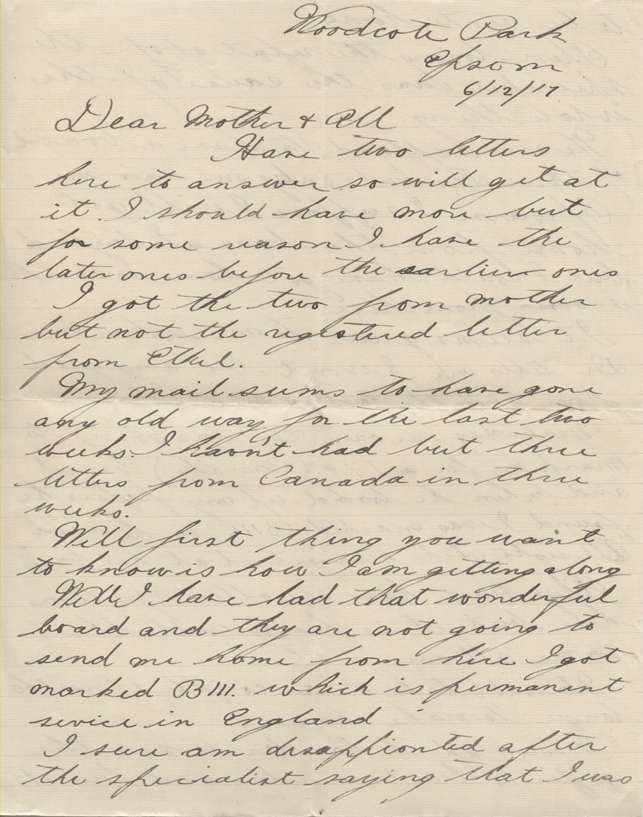 Woodcote Park
Epsom
6/12/17.
Dear Mother & All
Have two letters
here to answer so will get at
it. I should have more but
for some reason I have the
later ones before the earlier ones
I got the two from mother
but not the registered letter
from Ethel.
My mail seems to have gone
any old way for the last two
weeks. I havn't had but three
letters from Canada in three
weeks.
Well first thing you want
to know is how I am getting along
Well I have had that wonderful
board and they are not going to
send me home from here I got
marked B III. which is permanent
sevice in England
I sure am disappionted after
the specialist saying that I was